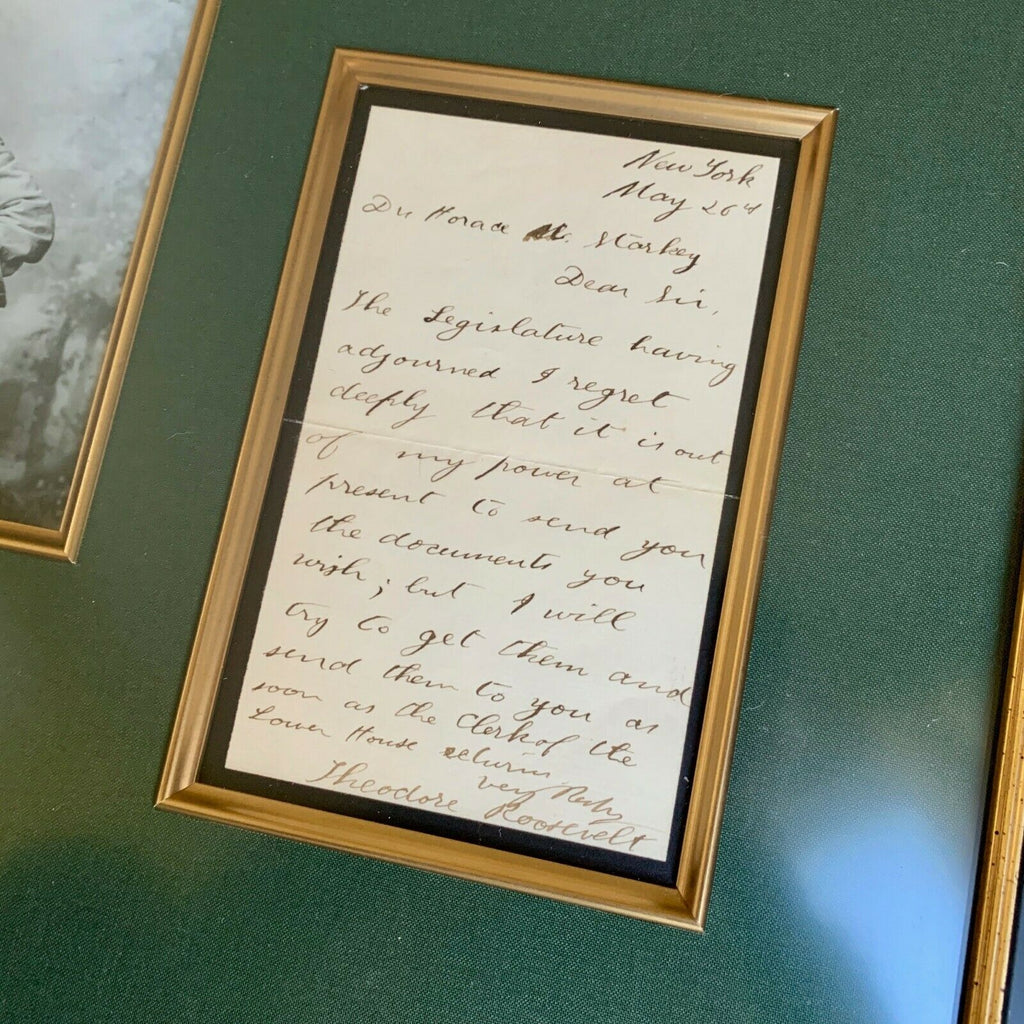 New York
May 26th
Dr Horace M. Starkey
Dear Sir,
The Legislature having
adjourned I regret
deeply that it is out
of my power at
present to send you
the documents you
wish; but I will
try to get them and
send them to you as
soon as the Clerk of the
Lower House returns
Very
Theodore Roosevelt